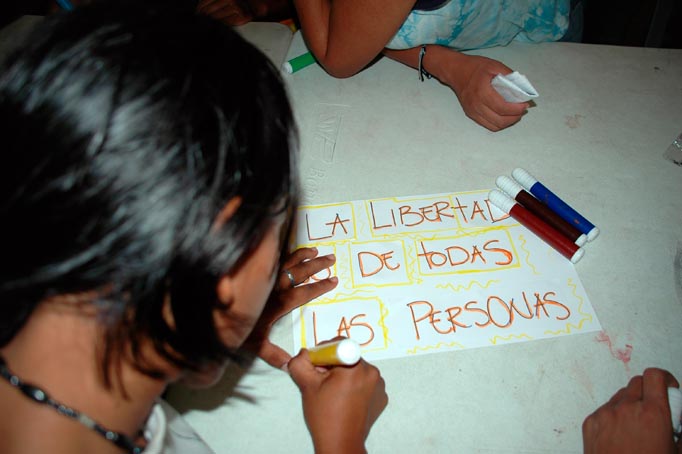 LA LIBERTAD
DE tODAS
LAS PERSONAS